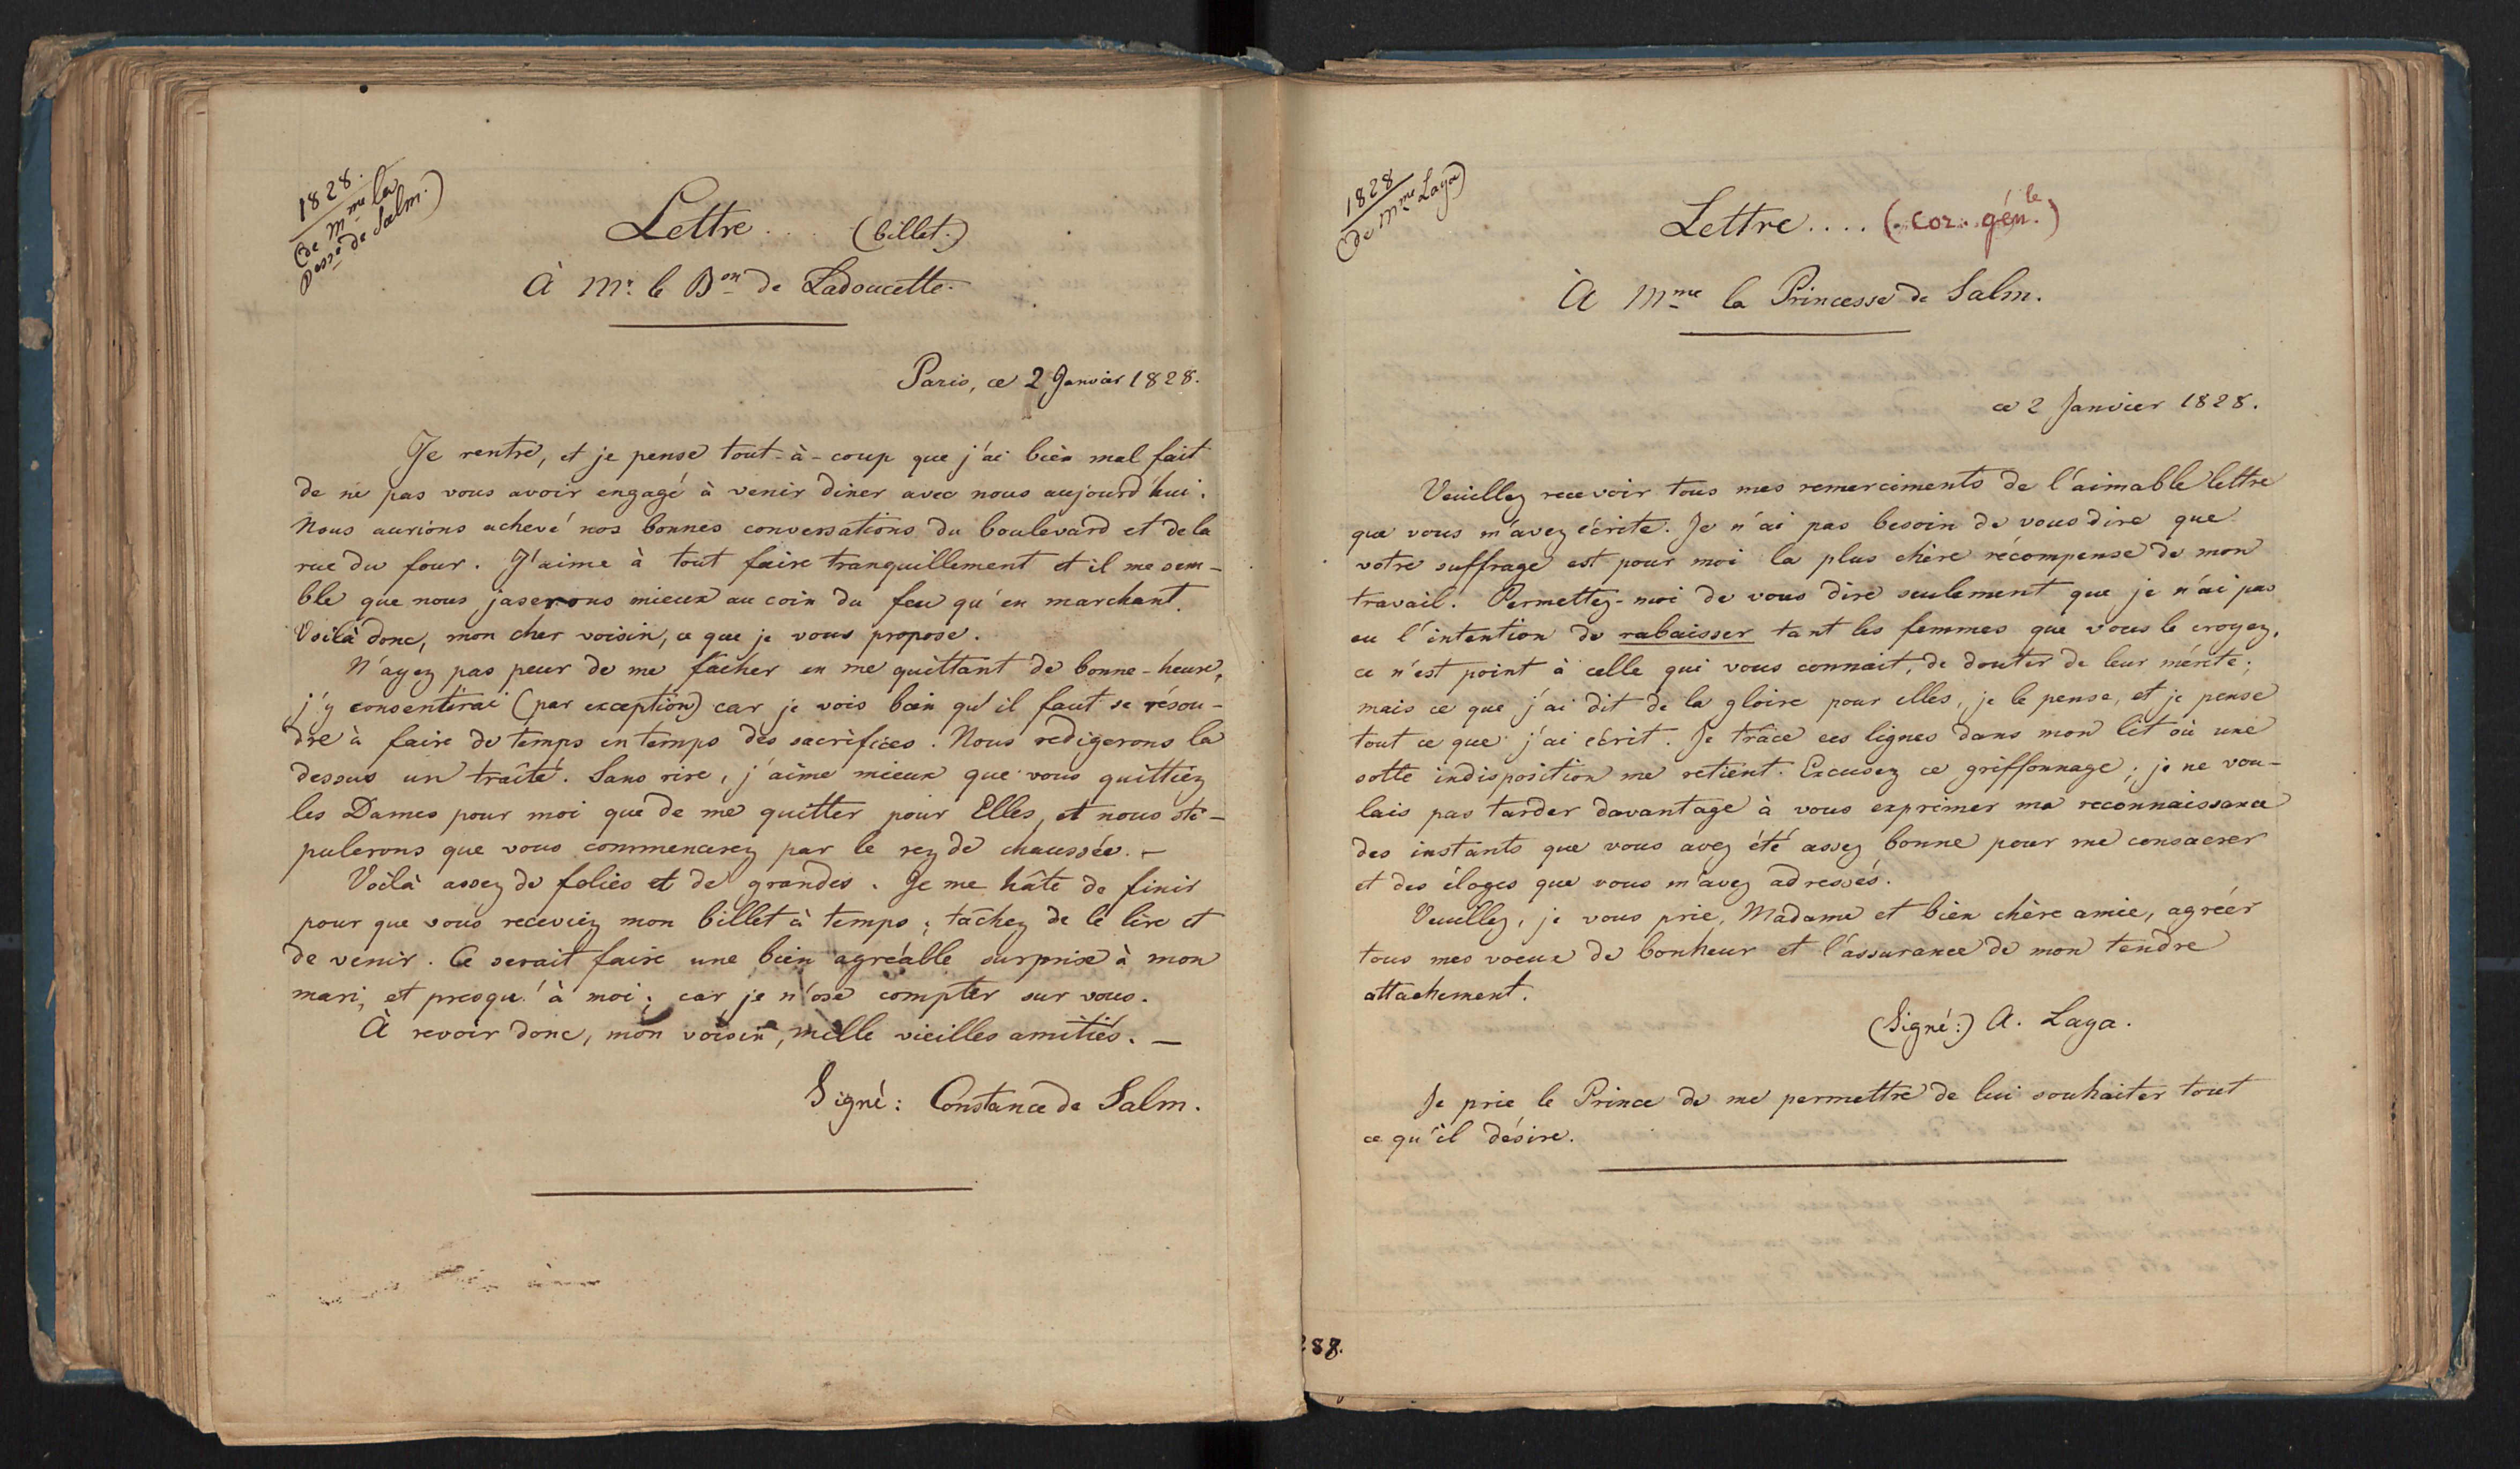 1828.
(de Mme la
Pesse de Salm.)
Lettre... (billet.)
À Mr. le Bon de Ladoucette.
Paris, ce 2 Janvier 1828.
Je rentre, et je pense tout-à-coup que j'ai bien mal fait
de ne pas vous avoir engagé à venir diner avec nous aujourd'hui.
Nous aurions achevé nos bonnes conversations du boulevard et de la
rue du four. J'aime à tout faire tranquillement et il me sem-
ble que nous jaserons mieux au coin du feu qu'en marchant.
Voilà donc, mon cher voisin, ce que je vous propose.
N'ayez pas peur de me fâcher en me quittant de bonne-heure,
j'y consentirai (par exception) car je vois bien qu'il faut se résou-
dre à faire de temps en temps des sacrifices. Nous redigerons la
dessus un traité. Sans rire, j'aime mieux que vous quittiez
les Dames pour moi que de me quitter pour Elles, et nous sti-
pulerons que vous commencerez par le rez de chaussée. —
Voilà assez de folies et de grandes. Je me hâte de finir
pour que vous receviez mon billet à temps; tâchez de le lire et
de venir. Ce serait faire une bien agréable surprise à mon
mari, et presqu'à moi; car je n'ose compter sur vous.
À revoir donc, mon voisin, mille vieilles amitiés. —
Signé: Constance de Salm.
1828
(de Mme Laya)
Lettre.... (cor. génle.)
À Mme la Princesse de Salm.
ce 2 Janvier 1828.
Veuillez recevoir tous mes remerciments de l'aimable lettre
que vous m'avez écrite. Je n'ai pas besoin de vous dire que
votre suffrage est pour moi la plus chère récompense de mon
travail. Permettez-moi de vous dire seulement que je n'ai pas
eu l'intention de rabaisser tant les femmes que vous le croyez,
ce n'est point à celle qui vous connait, de douter de leur mérite;
mais ce que j'ai dit de la gloire pour elles, je le pense, et je pense
tout ce que j'ai écrit. Je trace ces lignes dans mon lit où une
sotte indisposition me retient. Excusez ce griffonnage; je ne vou-
lais pas tarder davantage à vous exprimer ma reconnaissance
des instants que vous avez été assez bonne pour me consacrer
et des éloges que vous m'avez adressés.
Veuillez, je vous prie, Madame et bien chère amie, agréer
tous mes voeux de bonheur et l'assurance de mon tendre
attachement.
(Signé:) A. Laya.
Je prie le Prince de me permettre de lui souhaiter tout
ce qu'il désire.